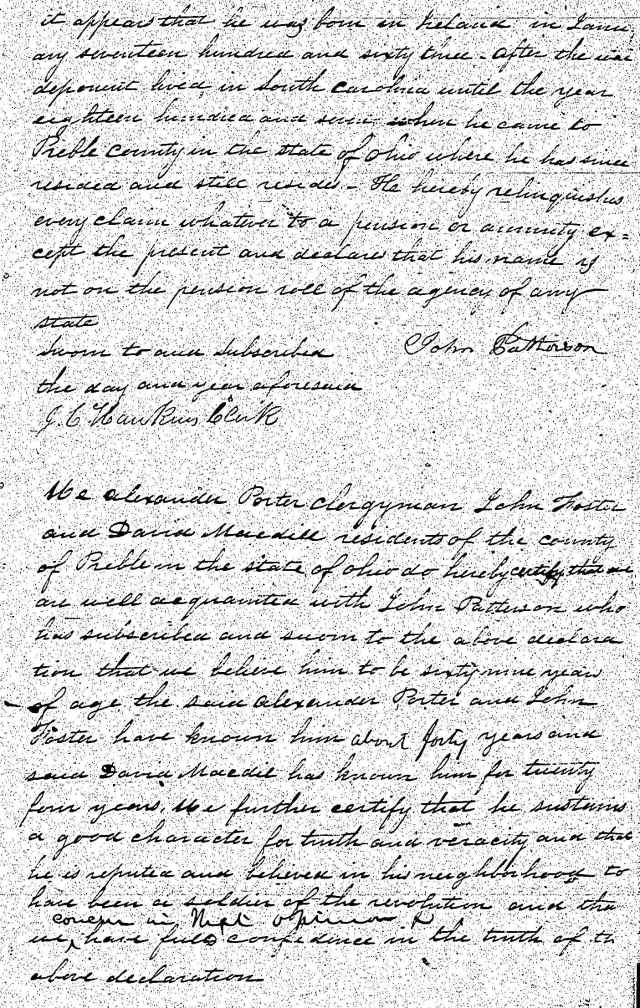 it appears that he was born in Ireland in Janu
ary seventeen hundred and sixty three - after the war
deponent lived in South Carolina until the year
eighteen hundred and seven when he came to
Preble county in the state of Ohio where he has since
resided and still resides - He hereby relinquishes
every claim whatever to a pension or annuity ex=
cept the present and declares that his name is
not on the pension roll of the agency of any
state
Sworn to and Subscribed John Patterson
the day and year aforesaid
J. C. Hawkins Clerk
We alexander Porter clergyman John Foster
and David Macdill residents of the county
of Preble in the state of Ohio do hereby certify that we
are well acquainted with John Patterson who
has subscribed and sworn to the above declara
tion that we believe him to be sixty nine years
of age the said alexander Porter and John
Foster have known him about forty years and
said David Macdil has known him for twenty
four years. We further certify that he sustains
a good character for truth and veracity and that
he is reputed and believed in his neighborhood to
have been a soldier of the revolution and tha
concur in that opinion &
we have full confidence in the truth of th
above declaration